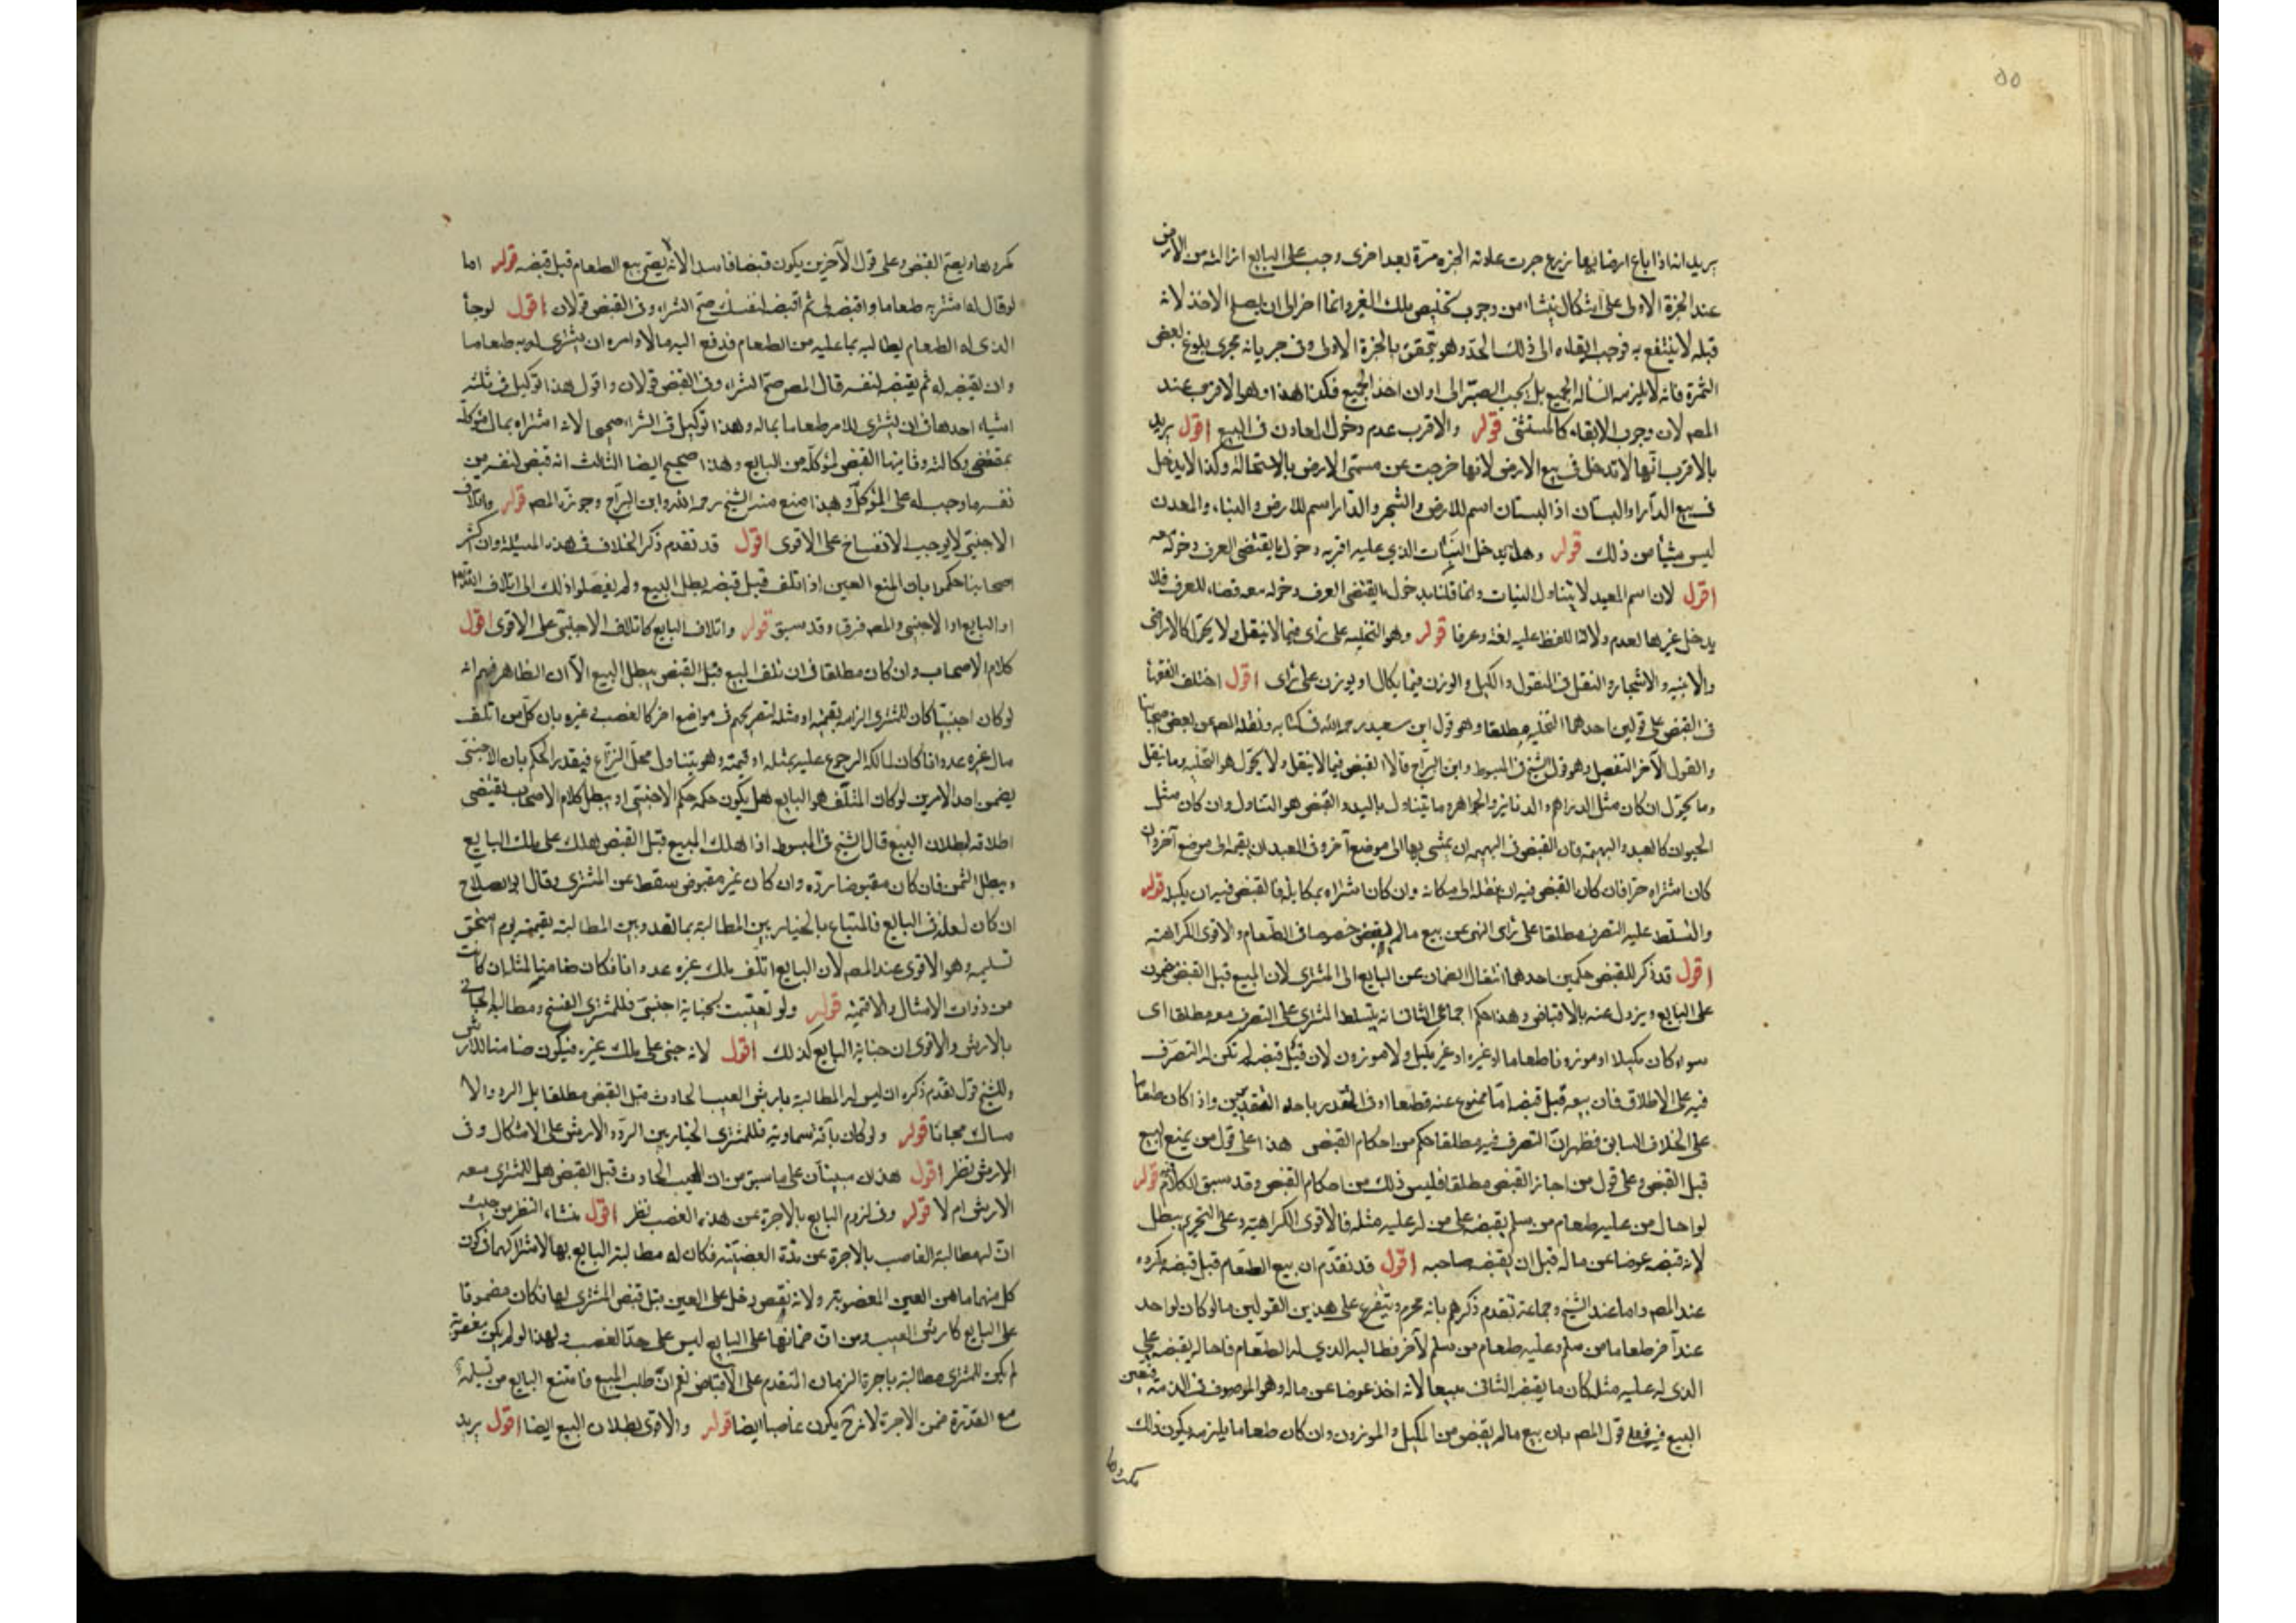 ٥٥
يريد انه اذا باع ارضا فيها زرع جرت عادته الجزه مرّة بعد اخرى وجب على البايع ازالته من الارض
عند الجزة الاولى على اشكال ينشا من وجوب تخليص ملك الغير وانما اخر الى ان يصلح الاخذ لانه
قبله لا ينتفع به فوجب ابقاءه الى ذلك الحدّ وهو يتحقق بالجزة الاولى وفى جريانه مجرى بلوغ بعض
الثمرة فانه لا يلزمه ازالة الجميع بل يجب الصبر الى اوان اخذ الجميع فكذا هذا وهو الاقرب عند
المصه لان وجوب الابقاء كالمستثنى قوله والاقرب عدم دخول المعادن فى البيع اقول يريد
بالاقرب انها لا تدخل فى بيع الارض لانها خرجت عن مسمّى الارض بالاستحالة وكذا لا يدخل
فى بيع الدار او البستان اذ البستان اسم للارض والشجر والدار اسم للارض والبناء والمعدن
ليس شيأ من ذلك قوله وهل يدخل الثياب الذي عليه اقربه دخول ما يقتضى العرف دخوله معه
اقول لان اسم العبد لا يتناول الثياب وانما قلنا بدخول ما يقتضى العرف دخوله معه قضاء للعرف فلا
يدخل غيرها لعدم دلالة اللفظ عليه لغة وعرفا قوله وهو التخليه على راى فيما لا ينقل ولا يحوّل كالاراضى
والابنيه والاشجار والنقل فى المنقول والكيل والوزن فيما يكال او يوزن على راى اقول اختلف الفقهأ
فى القبض على قولين احدهما التخليه مطلقا وهو قول ابن سعيد رحمه الله فى كتابه ونقله المصه عن بعض اصحابنا
والقول الآخر التفصيل وهو قول الشيخ فى المبسوط وابن البراج قالا القبض فيما لا ينقل ولا يحوّل هو التخليه وما ينقل
وما يحوّل ان كان مثل الدراهم والدنانير والجواهر وما يتناول باليد والقبض هو التناول وان كان مثل
الحيوان كالعبد والبهيمة فان القبض فى البهيمه ان يمشى بها الى موضع آخر وفى العبد ان يقيمه الى موضع آخر وان
كان اشتراه جزافا كان القبض فيه ان ينقله الى مكانه وان كان اشتراه مكايلة فالقبض فيه ان يكيله قوله
والتسلّط عليه التصرف مطلقا على راى النهى عن بيع ما لم يقبض خصوصا فى الطعام والاقوى الكراهته
اقول قد ذكر للقبض حكمين احدهما انتقال الضمان عن البايع الى المشترى لان المبيع قبل القبض مضمون
على البايع ويزول عنه بالاقباض وهذا حكم اجماعى الثانى انه يتسلط المشترى على التصرف معه مطلقا اى
سواء كان مكيلا او موزونا طعاما او غيره او غير مكيل ولا موزون لان قبل قبضه لم تكن له التصرّف
فيه على الاطلاق فان بيعه قبل قبضه امّا ممنوع عنه قطعا او فى التقدير باحد التقديرين واذا كان طعاما
على الخلاف السابق فظهر انّ التصرف فيه مطلقا حكم من احكام القبض هذا على قول من يمنع البيع
قبل القبض وعلى قول من اجاز القبض مطلقا فليس ذلك من احكام القبض وقد سبق الكلام فيه قوله
لو احال من عليه طعام من سلم بقبضه على من له عليه مثله فالاقوى الكراهية وعلى التحريم يبطل
لانه قبضه عوضا عن ماله قبل ان يقبضه صاحبه اقول قد تقدّم ان بيع الطعام قبل قبضه مكروه
عند المصه واما عند الشيخ وجماعة تقدم ذكرهم بانه محرم ويتفرع على هذين القولين ما لو كان لواحد
عند آخر طعاما من سلم وعليه طعام من سلم لآخر فطالبه الذي له الطعام فاحاله بقبضه على
الذى له عليه مثله كان ما يقبضه الثانى مبيعا لانه اخذ عوضا عن ماله وهو الموصوف فى الذمة فتعين
البيع فيه فعلى قول المصه بان بيع ما لم يقبض من المكيل والموزون وان كان طعاما يلزمه يكون ذلك
مكروها
مكروها ويصحّ القبض وعلى قول الآخرين يكون قبضا فاسدا لانه لا يصحّ بيع الطعام قبل قبضه قوله اما
لو قال له اشتر به طعاما واقبضه لى ثم اقبضه لنفسك صحّ الشراء وفى القبض قولان اقول لو جأ
الذى له الطعام يطالبه بما عليه من الطعام فدفع اليه مالا وامره ان يشترى له به طعاما
وان يقبضه له ثم يقبضه لنفسه قال المصه صحّ الشراء وفى القبض قولان واقول هذا توكيل فى ثلثة
اشياء احدها فى ان يشترى للامر طعاما بماله وهذا توكيل فى الشراء صحيحا لانه اشتراه بمال موكله
بمقتضى وكالته وثانيها القبض لموكله من البايع وهذا صحيح ايضا الثالث انه قبض لنفسه من
نفسه ما وجب له على الموكل وهذا منع منه الشيخ رحمه الله وابن البراج وجوزه المصه قوله واتلاف
الاجنبّى لا يوجب الانفساخ على الاقوى اقول قد تقدم ذكر الخلاف فى هذه المسئلة وان اكثر
اصحابنا حكموا بان المبيع العين اذا تلف قبل قبضه بطل البيع ولم يفصّلوا ذلك الى اتلاف الله تعالى
او البايع او الاجنبى والمصه فرق وقد سبق قوله واتلاف البايع كاتلاف الاجنبّى على الاقوى اقول
كلام الاصحاب وان كان مطلقا فى ان تلف المبيع قبل القبض يبطل البيع الّا ان الظاهر فيهم انه
لو كان اجنبيّا كان للمشترى الزامه بقيمته او مثله لتصريحهم فى مواضع اخر كالغصب وغيره بان كلّ من اتلف
مال غيره عدوانا كان لمالكه الرجوع عليه بمثله او قيمته وهو يتناول محلّ النزاع فبقدر الحكم بان الاجنبّى
يضمن احد الامرين لو كان المتلف هو البايع هل يكون حكمه حكم الاجنبّى او يبطل كلام الاصحاب يقتضى
اطلاقه لبطلان البيع قال الشيخ فى المبسوط اذا هلك المبيع قبل القبض هلك على ملك البايع
ويبطل الثمن فان كان مقبوضا ردّه وان كان غير مقبوض سقط عن المشترى وقال ابو الصلاح
ان كان لعلة فى البايع فالمبتاع بالخيار بين المطالبة بما نقد وبين المطالبة بقيمته يوم استحق
تسليمه وهو الاقوى عند المصه لان البايع اتلف ملك غيره عدوانا فكان ضامنا لمثله ان كانت
من ذوات الامثال والا قيمته قوله ولو تعيّبت بجناية اجنبّى فللمشترى الفسخ ومطالبة الجانى
بالارش والاقوى ان جناية البايع كذلك اقول لانه جنى على ملك غيره فيكون ضامنا للارش
وللشيخ قول تقدم ذكره انه ليس له المطالبة بارش العيب الحادث قبل القبض مطلقا بل الرد والا
مساك مجانا قوله ولو كان بآفة سماوية فللمشترى الخيار بين الردّ والارش على الاشكال وفى
الارش نظر اقول هذان مبنيان على ما سبق من ان العيب الحادث قبل القبض هل للمشترى معه
الارش ام لا قوله وفى لزوم البايع بالاجرة عن هذه الغصب نظر اقول منشاء النظر من حيث
انّ له مطالبة الغاصب بالاجرة عن مدّة الغصبيّة فكان له مطالبة البايع بها لاشتراكهما فى كون
كل منهما ضامن العين المغصوبة ولانه نقص دخل على العين قبل قبض المشترى لها فكان مضمونا
على البايع كارش العيب ومن انّ ضمانها على البايع ليس على حدّ الغصب ولهذا لو لم يكن مغصوبة
لم يكن للمشترى مطالبة باجرة الزمان المتقدم على الاقباض نعم انّ طلب المبيع فامتنع البايع من تسليمه
مع القدرة ضمن الاجرة لانه ح يكون غاصبا ايضا قوله والاقوى بطلان البيع ايضا اقول يريد